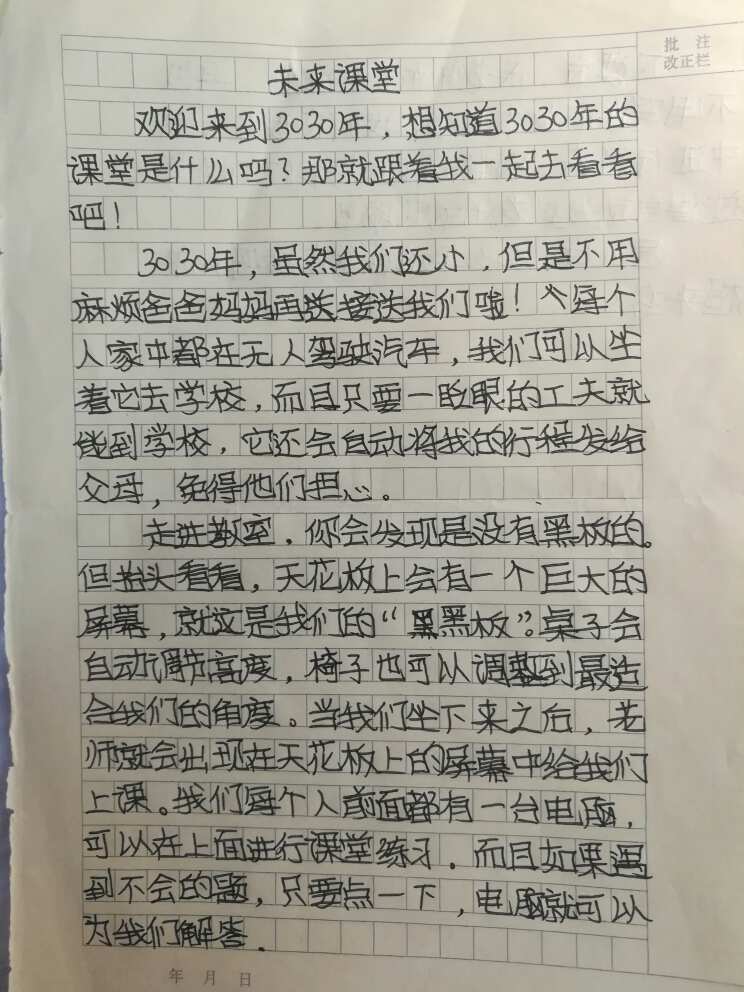 批 注
改正栏
未来课堂
欢迎来到3030年，想知道3030年的
课堂是什么吗？那就跟着我一起去看看
吧！
3030年，虽然我们还小，但是不用
麻烦爸爸妈妈再送接送我们啦！每个
人家中都在无人驾驶汽车，我们可以坐
着它去学校，而且只要一眨眼的工夫就
能到学校，它还会自动将我的行程发给
父母，免得他们担心。
走进教室，你会发现是没有黑板的。
但抬头看看，天花板上会有一个巨大的
屏幕，就这是我们的“黑黑板”。桌子会
自动调节高度，椅子也可以调整到最适
合我们的角度。当我们坐下来之后，老
师就会出现在天花板上的屏幕中给我们
上课。我们每个人前面都有一台电脑，
可以在上面进行课堂练习，而且如果遇
到不会的题，只要点一下，电脑就可以
为我们解答．
年 月 日